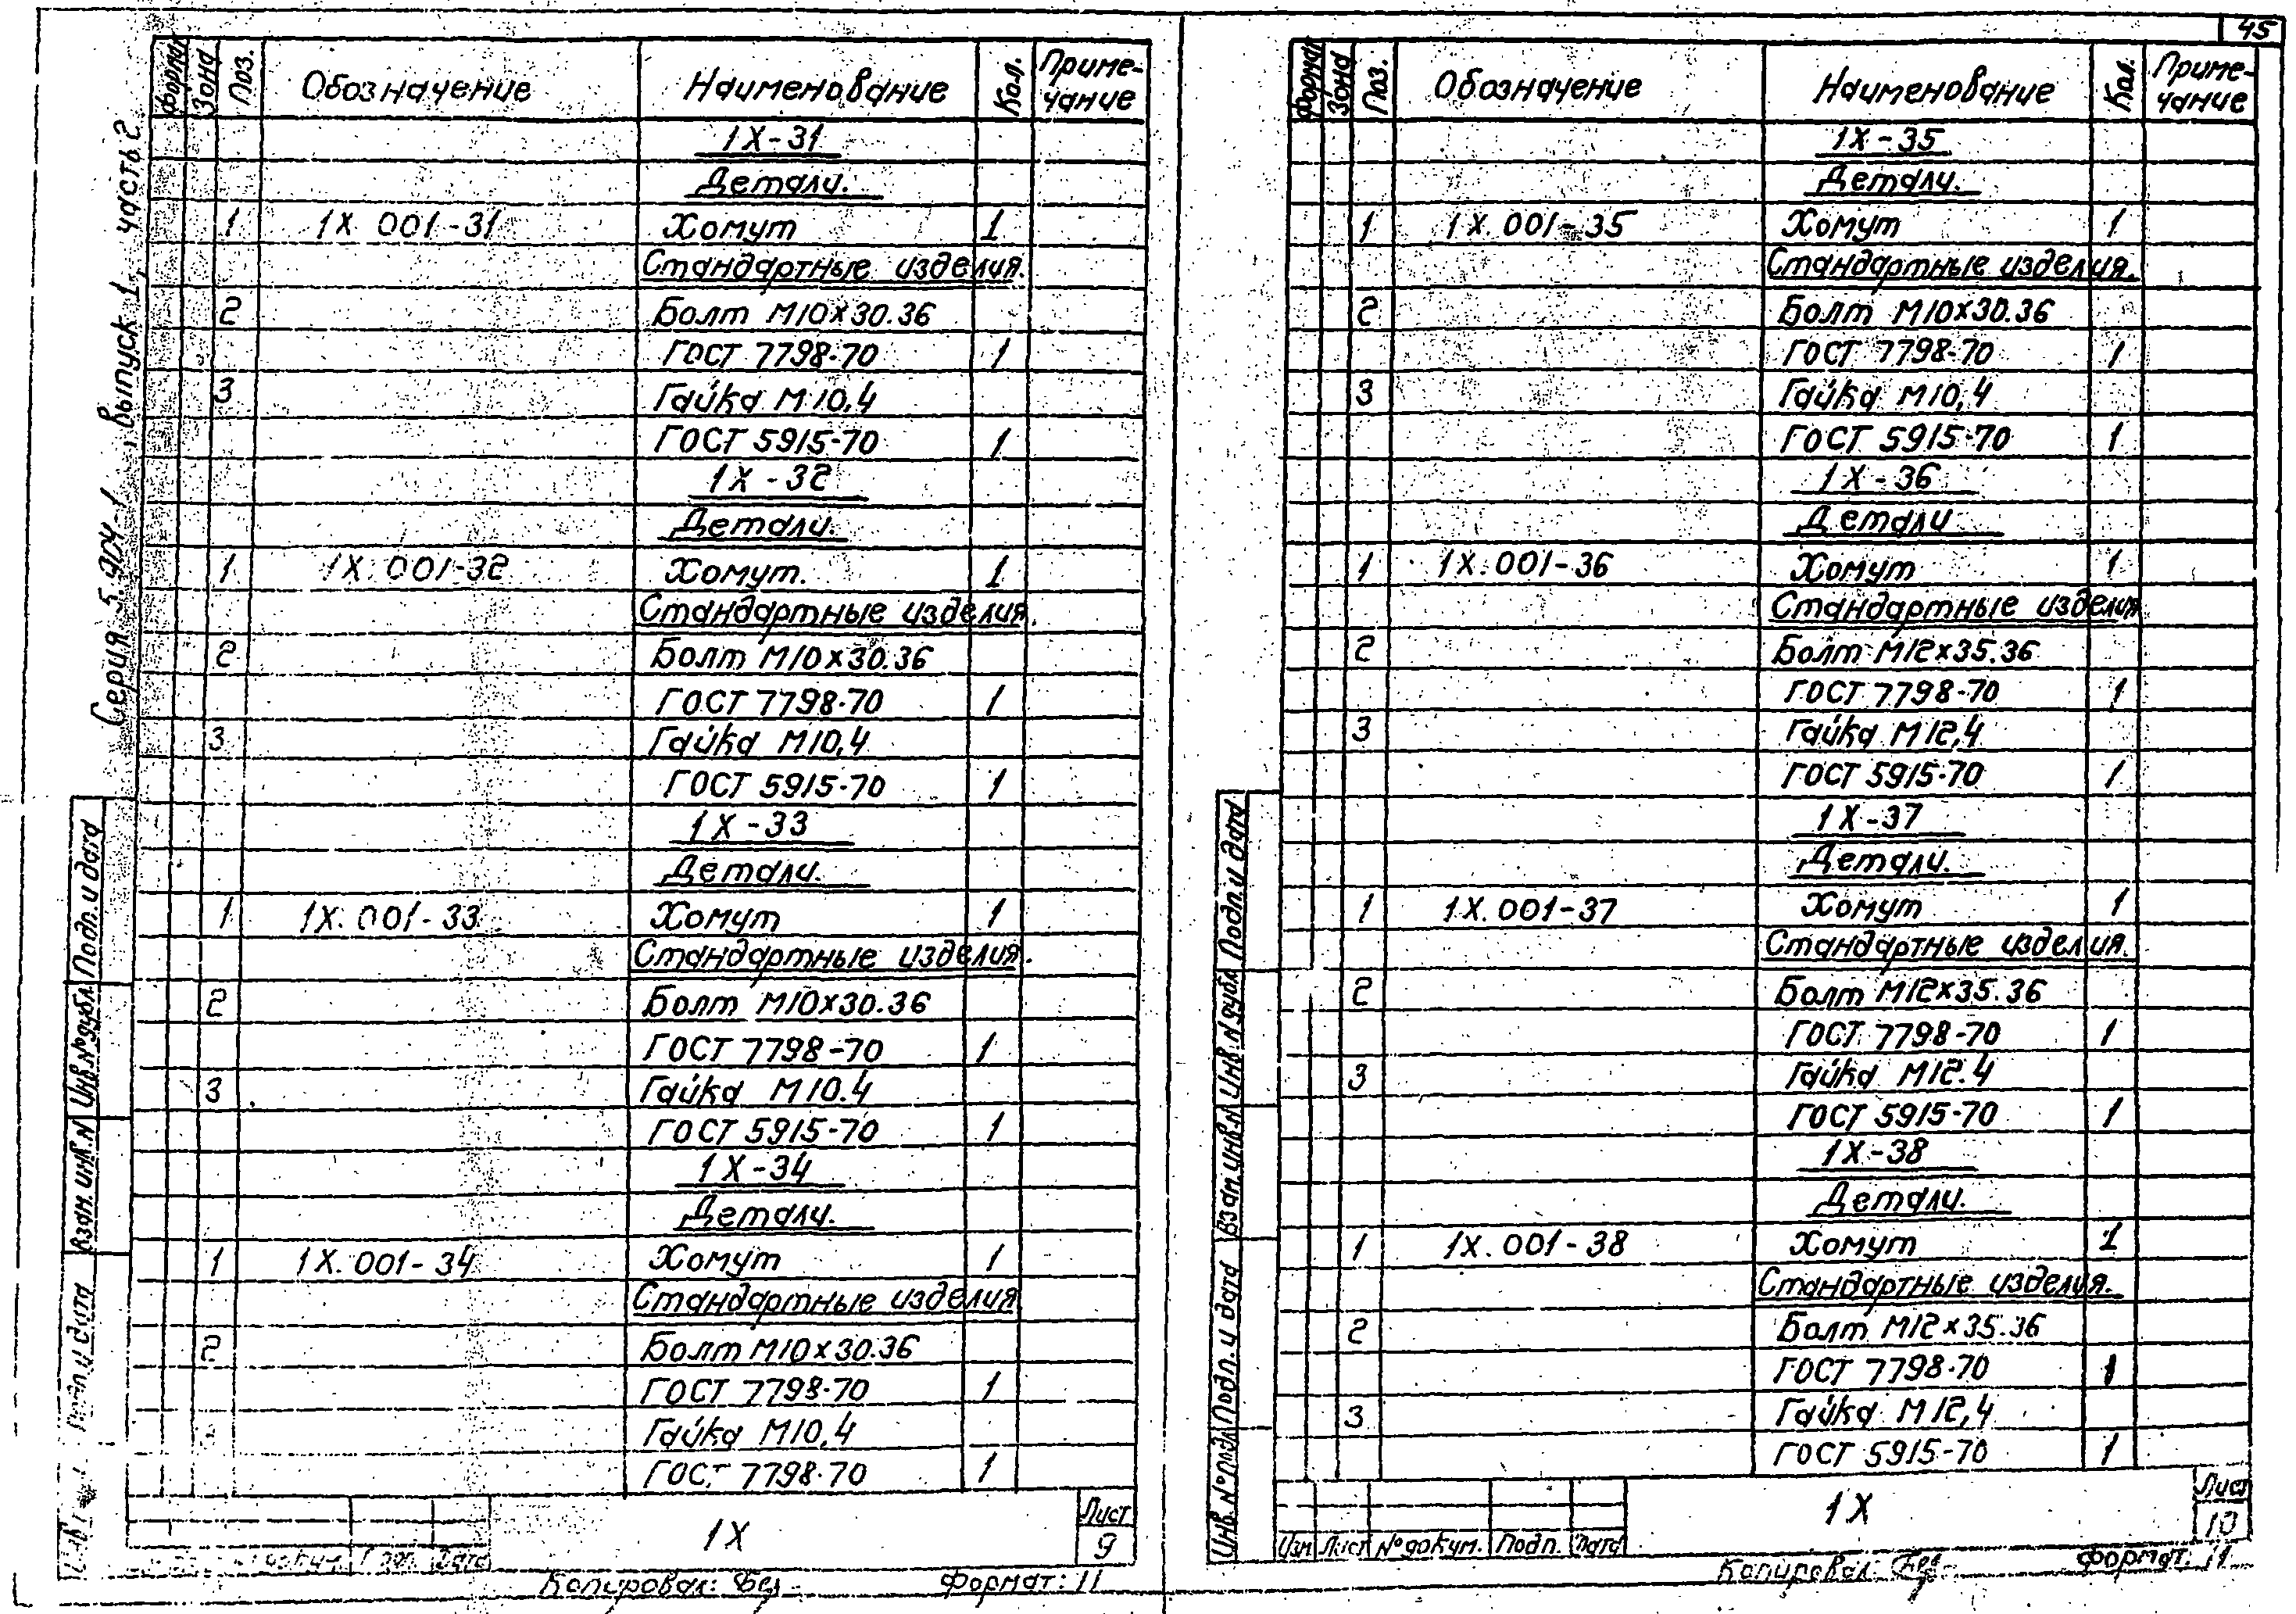 45
Серия 5.904-1, выпуск 1, часть 2
Формат Зона Поз. Обозначение Наименование Кол. Приме-
чание
1Х-31
Детали.
1 1Х 001-31 Хомут 1
Стандартные изделия.
2 Болт М10х30.36
ГОСТ 7798-70 1
3 Гайка М10,4
ГОСТ 5915-70 1
1Х-32
Детали.
1 1Х.001-32 Хомут. 1
Стандартные изделия.
2 Болт М10х30.36
ГОСТ 7798-70 1
3 Гайка М10,4
ГОСТ 5915-70 1
1Х-33
Детали.
1 1Х.001-33 Хомут 1
Стандартные изделия.
2 Болт М10х30.36
ГОСТ 7798-70 1
3 Гайка М10.4
ГОСТ 5915-70 1
1Х-34
Детали.
1 1Х.001-34 Хомут 1
Стандартные изделия
2 Болт М10х30.36
ГОСТ 7798-70 1
Гайка М10,4
ГОСТ 7798-70 1
Подп. и дата
Инв.№дубл.
Взам. инв.N
Подп. и дата
1Х
Лист
9
Дата
Копировал:
Формат: 11
Формат Зона Поз. Обозначение Наименование Кол. Приме-
чание
1Х-35
Детали.
1 1Х.001-35 Хомут 1
Стандартные изделия.
2 Болт М10х30.36
ГОСТ 7798-70 1
3 Гайка М10,4
ГОСТ 5915-70 1
1Х-36
Детали
1 1Х.001-36 Хомут 1
Стандартные изделия
2 Болт М12х35.36
ГОСТ 7798-70 1
3 Гайка М12,4
ГОСТ 5915-70 1
1Х-37
Детали.
1 1Х.001-37 Хомут 1
Стандартные изделия.
2 Болт М12х35.36
ГОСТ 7798-70 1
3 Гайка М12.4
ГОСТ 5915-70 1
1Х-38
Детали.
1 1Х.001-38 Хомут 1
Стандартные изделия.
2 Болт М12х35.36
ГОСТ 7798-70 1
3 Гайка М12,4
ГОСТ 5915-70 1
Подп. и дата
Инв.N дубл
Взам.инв.N
Подп. и дата
Инв.N°подл
Изм Лист №докум. Подп. Дата
1Х
Лист
10
Копировал:
Формат: 11